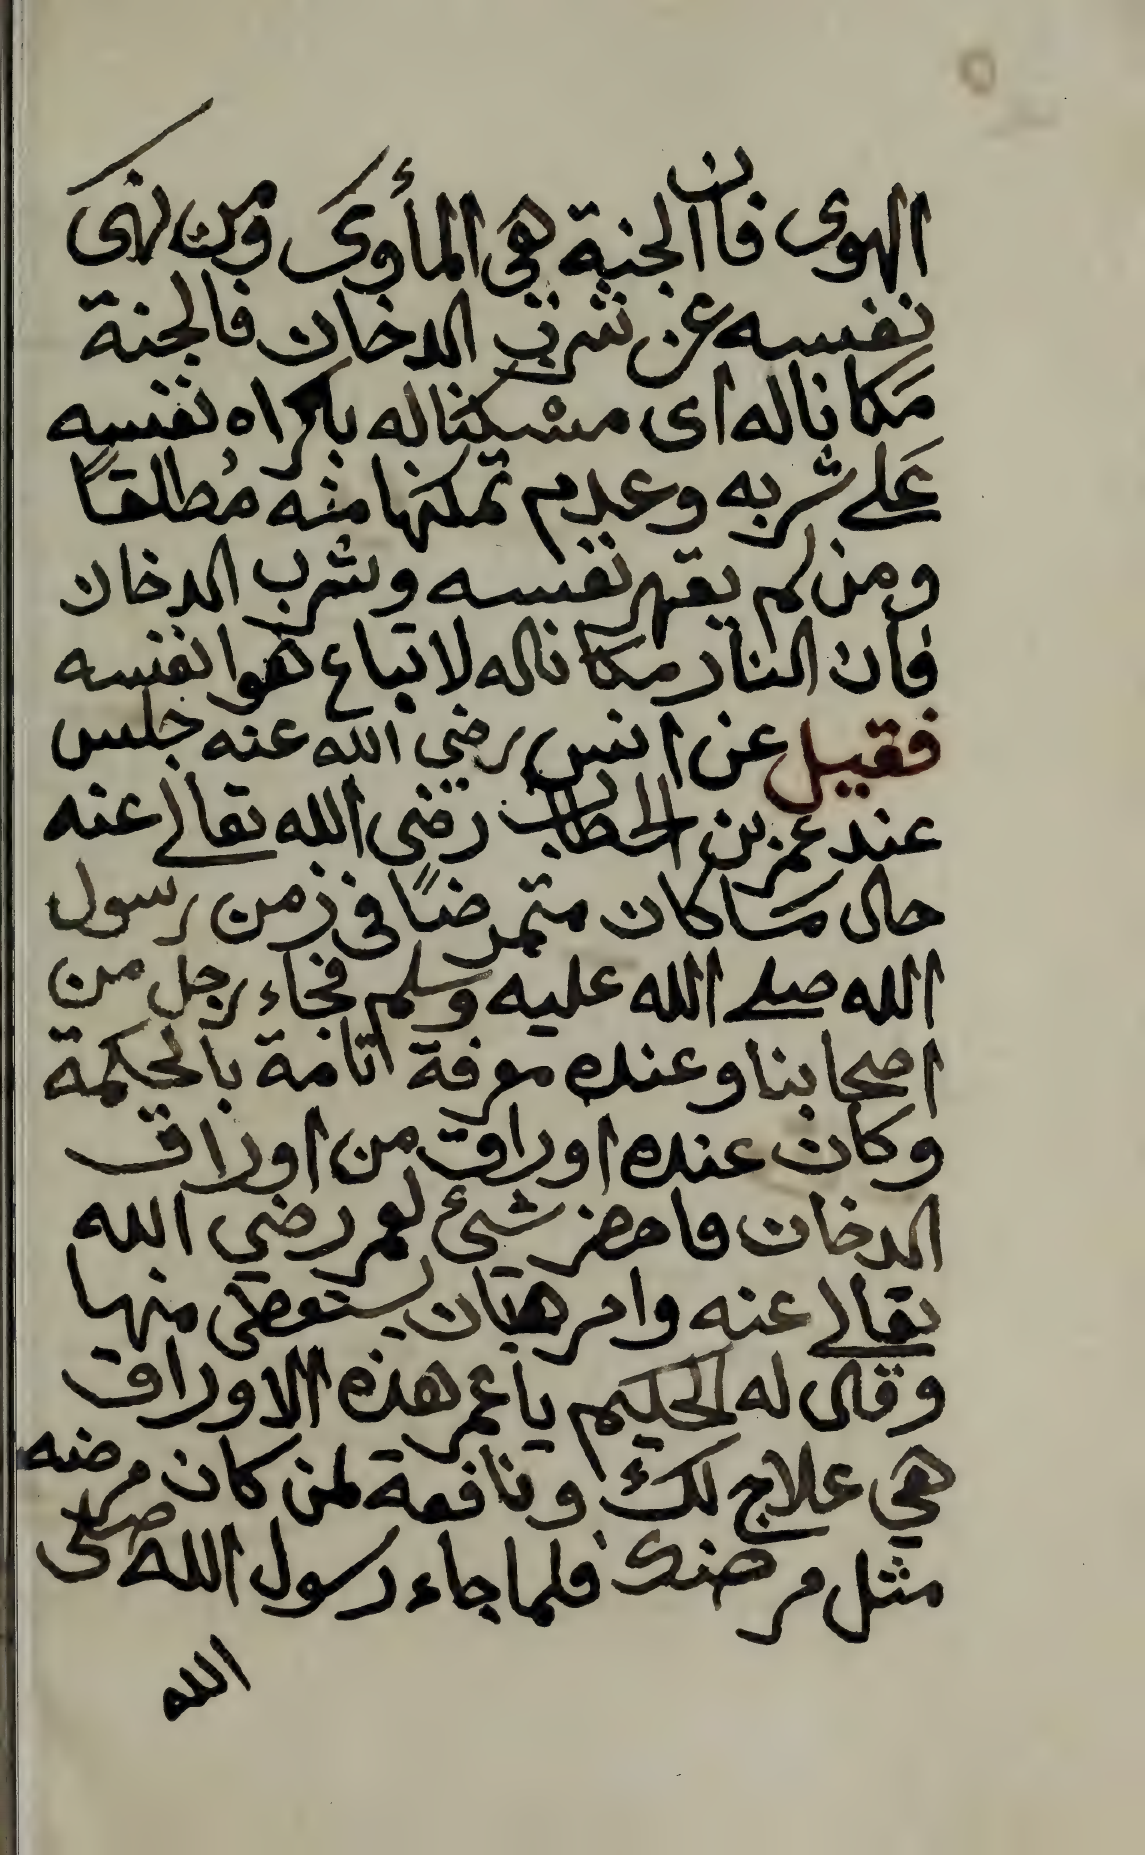 الهوى فان الجنة هي المأوى ومن نهى
نفسه عن شرب الدخان فالجنة
مكانا له اى مسكنا له باكراه نفسه
على شربه وعدم تمكنها منه مطلقاً
ومن لم يقهر نفسه وشرب الدخان
فان النار مكانا له لاتباع هوا نفسه
فقيل عن انس رضي الله عنه جلس
عند عمر بن الخطاب رضى الله تعالى عنه
حال ما كان متمرضاً فى زمن رسول
الله صلى الله عليه وسلم فجاء رجل من
اصحابنا وعنده معرفة تامة بالحكمة
وكان عنده اوراق من اوراق
الدخان فاحضر شئ لعمر رضي الله
تعالى عنه وامر هتان يستعطى منها
وقال له الحكيم يا عمر هذه الاوراق
هي علاج لك ونافعة لمن كان مرضه
مثل مرضك فلما جاء رسول الله صلى
الله